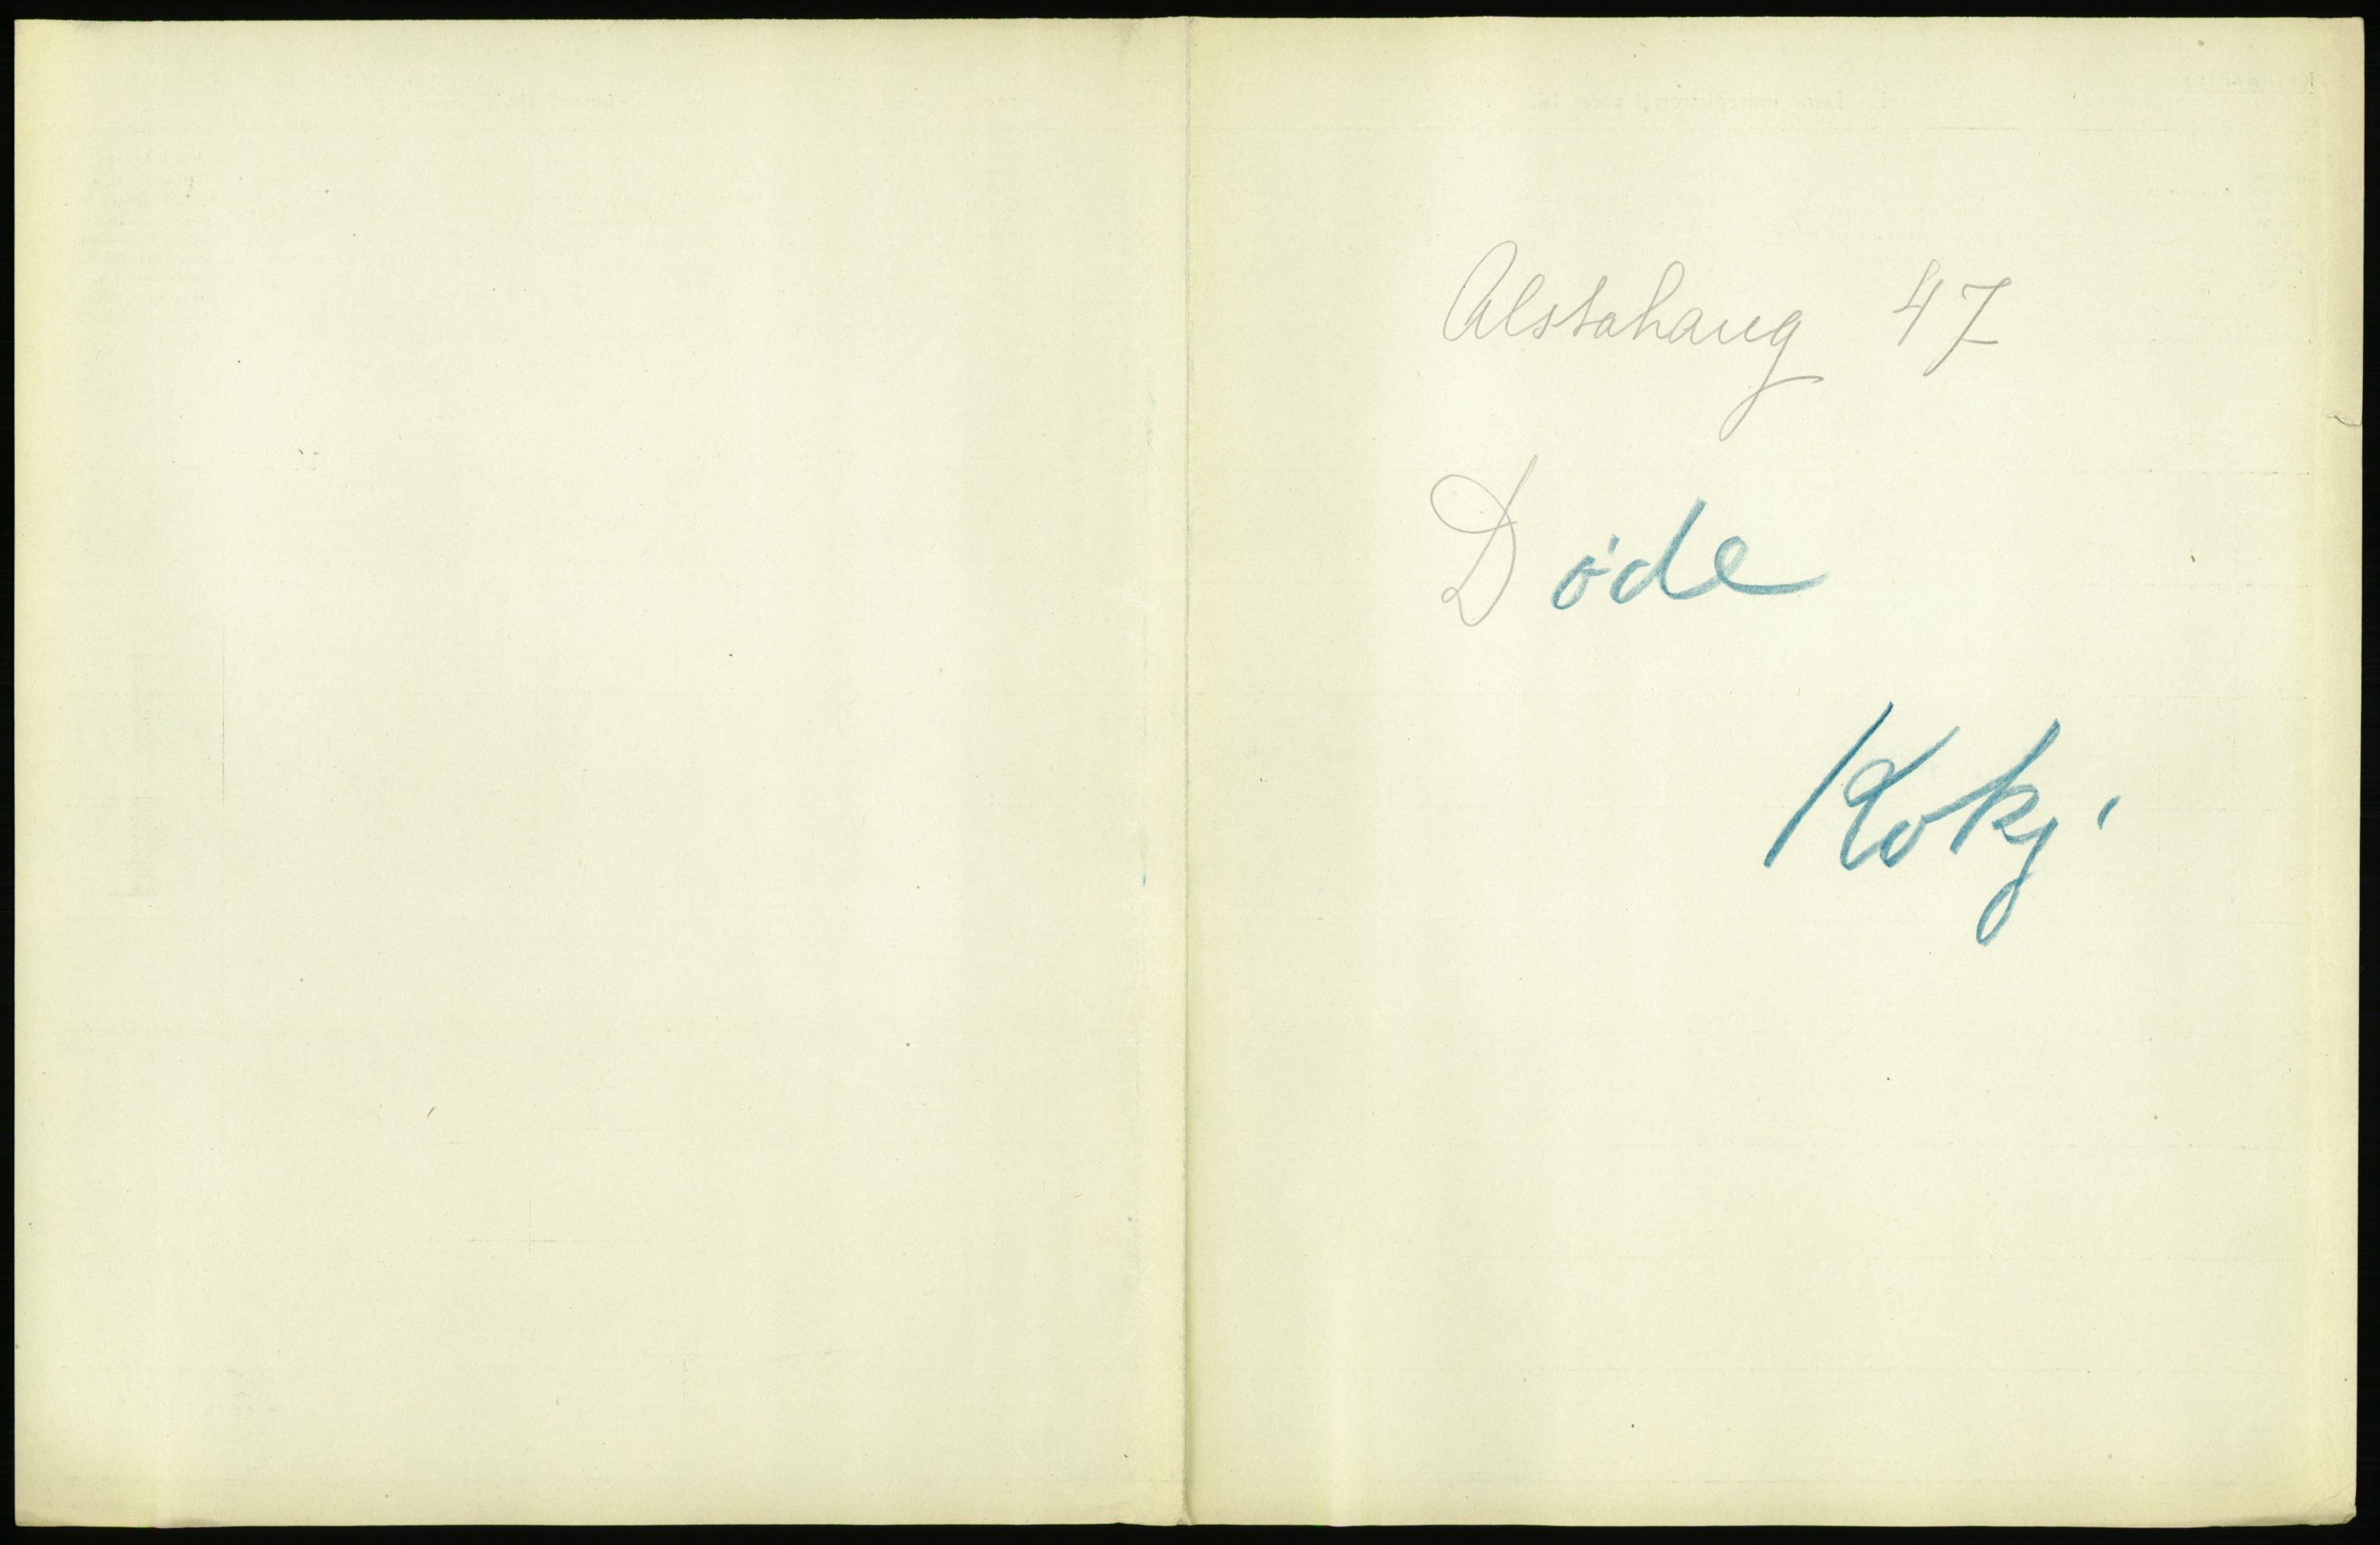 Alstahaug 47
Døde
Kvkj.